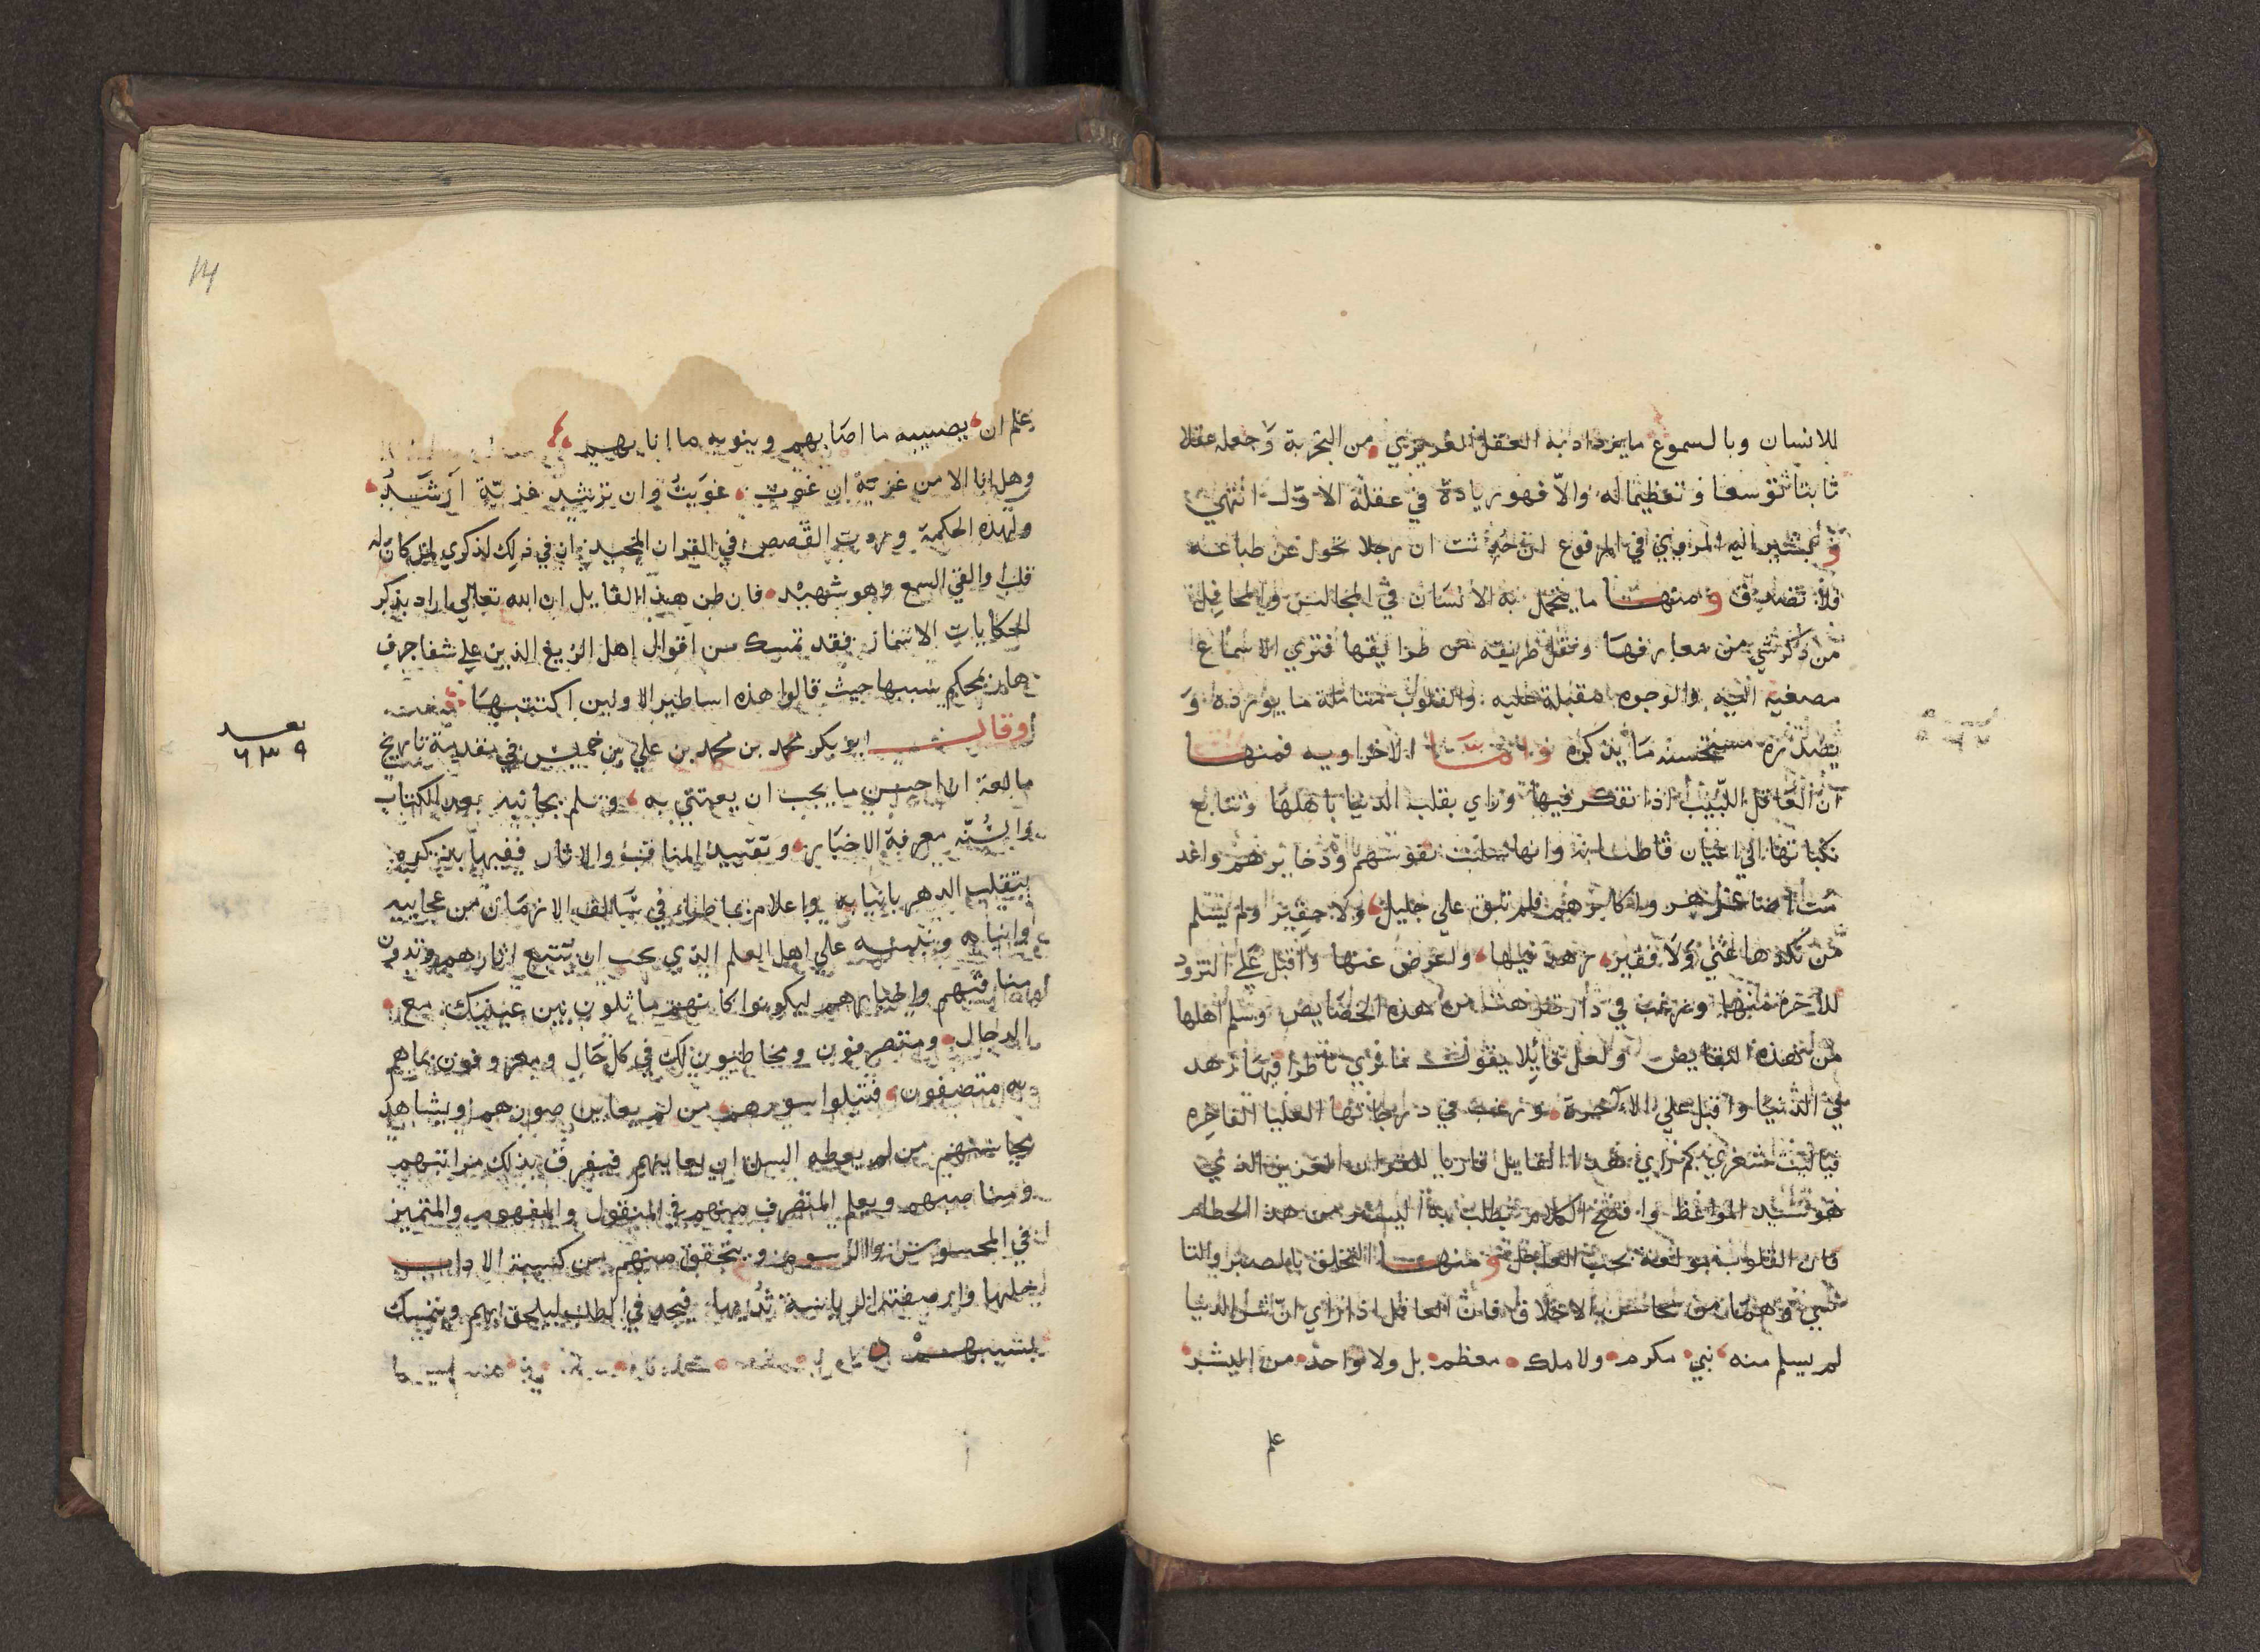 للانسان وبالسموع ما يزداد به العقل الغريزي من التجربة وجعله عقلا
ثابتا توسعا وتعظيما له والا فهو زيادة في عقله الاول انتهي
اليه المروي في المرفوع ان رجلا تحول عن طباعه
فلا تصدق ومنها ما يتجمل به الانسان في المجالس والمحافل
من ذكر شي من معارفها ونقل طريقه من طرايقها فتري الاسماع
مصغية اليه والوجوه مقبلة عليه والقلوب متاملة ما يورده و
يصدره مستحسنه ما يذكره واما الاخراويه فمنها
ان العاقل اللبيب اذا تفكر فيها وراي تقلب الدنيا باهلها وتتابع
نكباتها الي اعيان قاطنيها وانها سلبت نفوسهم وذخايرهم واعد
مت اصاغرهم واكابرهم فلم تبق علي جليل ولا حقير ولم يسلم
من نكدها غني ولا فقير زهد فيها واعرض عنها واقبل علي التزود
للاخرة منها ورغب في دار تنزهت عن هذه الخصايص وسلم اهلها
من هذه النقايص ولعل قايلا يقول ما نري ناظرا فيها زهد
في الدنيا واقبل علي الاخرة ورغب في درجاتها العليا الفاخره
فياليت شعري كم راي هذا القايل قاريا للقران العزيز الذي
هو سيد المواعظ وافصح الكلام يطلب به اليسير من هذا الحطام
فان القلوب مولعة بحب العاجل ومنها التخلق بالصبر والتا
سي وهما من محاسن الاخلاق فان العاقل اذا راي ان شر الدنيا
لم يسلم منه نبي مكرم ولا ملك معظم بل ولا واحد من البشر
علم
علم ان يصيبه ما اصابهم وينوبه ما انابهم
وهل انا الا من غزية ان غوت غويت وان ترشد غزية ارشد
ولهذه الحكمة وردت القصص في القران المجيد ان في ذلك لذكري لمن كان له
قلب او القي السمع وهو شهيد فان ظن هذا القايل ان الله تعالي اراد بذكر
الحكايات الاسمار فقد تمسك من اقوال اهل الزيغ الذين علي شفا جرف
هار بمحكم سببها حيث قالوا هذه اساطير الاولين اكتتبها
وقال ابو بكر محمد بن محمد بن علي بن خميس في مقدمة تاريخ
مالقة ان احسن ما يجب ان يعتني به ويلم بجانبه بعد الكتاب
والسنة معرفة الاخبار وتقييد المناقب والاثار ففيها تذكره
بتقلب الدهر بابنايه واعلام بما طرا في سالف الازمان من عجايبه
وانبايه وتنبيه علي اهل العلم الذي يجب ان تتبع اثارهم وتدون
مناقبهم واخبارهم ليكونوا كانهم ماثلون بين عينيك مع
الرجال ومتصرفون ومخاطبون لك في كل حال ومعروفون بما هم
به متصفون فيتلوا سورهم من لم يعاين صورهم ويشاهد
محاسنهم من لم يعطه السن ان يعاينهم فيعرف بذلك مراتبهم
ومناصبهم ويعلم المتصرف منهم في المنقول والمفهوم والمتميز
في المحسوس والمرسوم ويتحقق منهم من كسبته الاداب
حليها وارضعته الرياسة ثديها فيجد في الطلب ليلحق بهم ويتمسك
بسببهم
بعد
٦٣٩
14